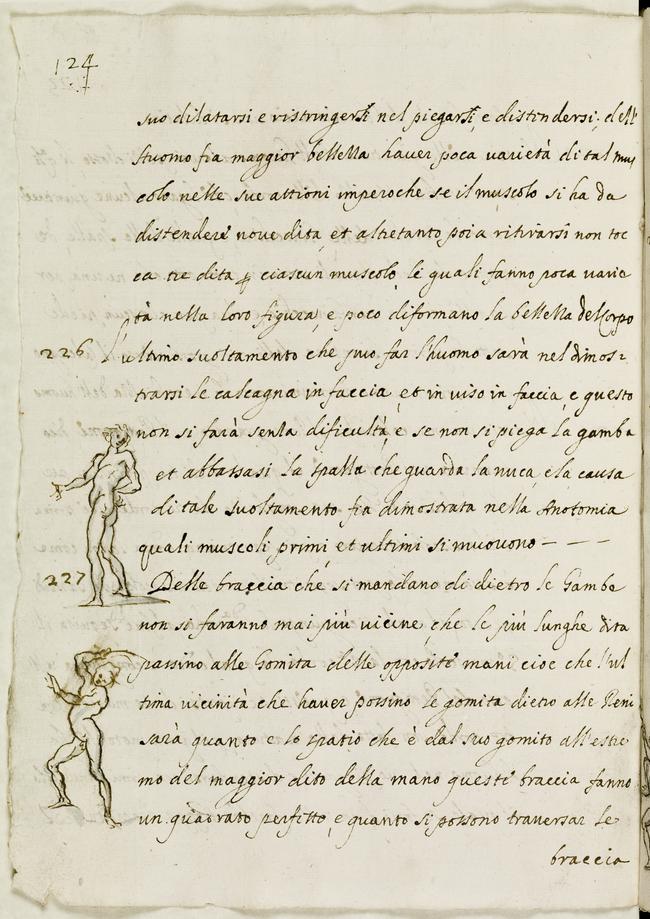 124
suo dilatarsi e ristringersi nel piegarsi, e distendersi; dell
huomo fia maggior bellezza haver poca varietà di tal mus
colo nelle sue attioni imperoche se il muscolo si ha da
distendere nove dita, et altretanto poi a ritirarsi non toc
ca tre dita ꝑ ciascun muscolo, le quali fanno poca varie
tà nella loro figura, e poco diformano la bellezza del Corpo
226 L'ultimo svoltamento che può far l'huomo sarà nel dimos=
trarsi le calcagna in faccia, et in viso in faccia, e questo
non si farà senza dificultà, e se non si piega la gamba
et abbassasi la spalla che guarda la nuca, e la causa
di tale svoltamento fia dimostrata nella Anotomia
quali muscoli primi, et ultimi si muovono - - -
227 Delle braccia che si mandano di dietro le Gambe
non si faranno mai più vicine, che le più lunghe dita
passino alle Gomita delle opposite mani cioe che l'ul
tima vicinità che haver possino le gomita dietro alle Reni
sarà quanto e lo spatio che è dal suo gomito all'estre
mo del maggior dito della mano queste braccia fanno
un quadrato perfetto, e quanto si possono traversar le
braccia